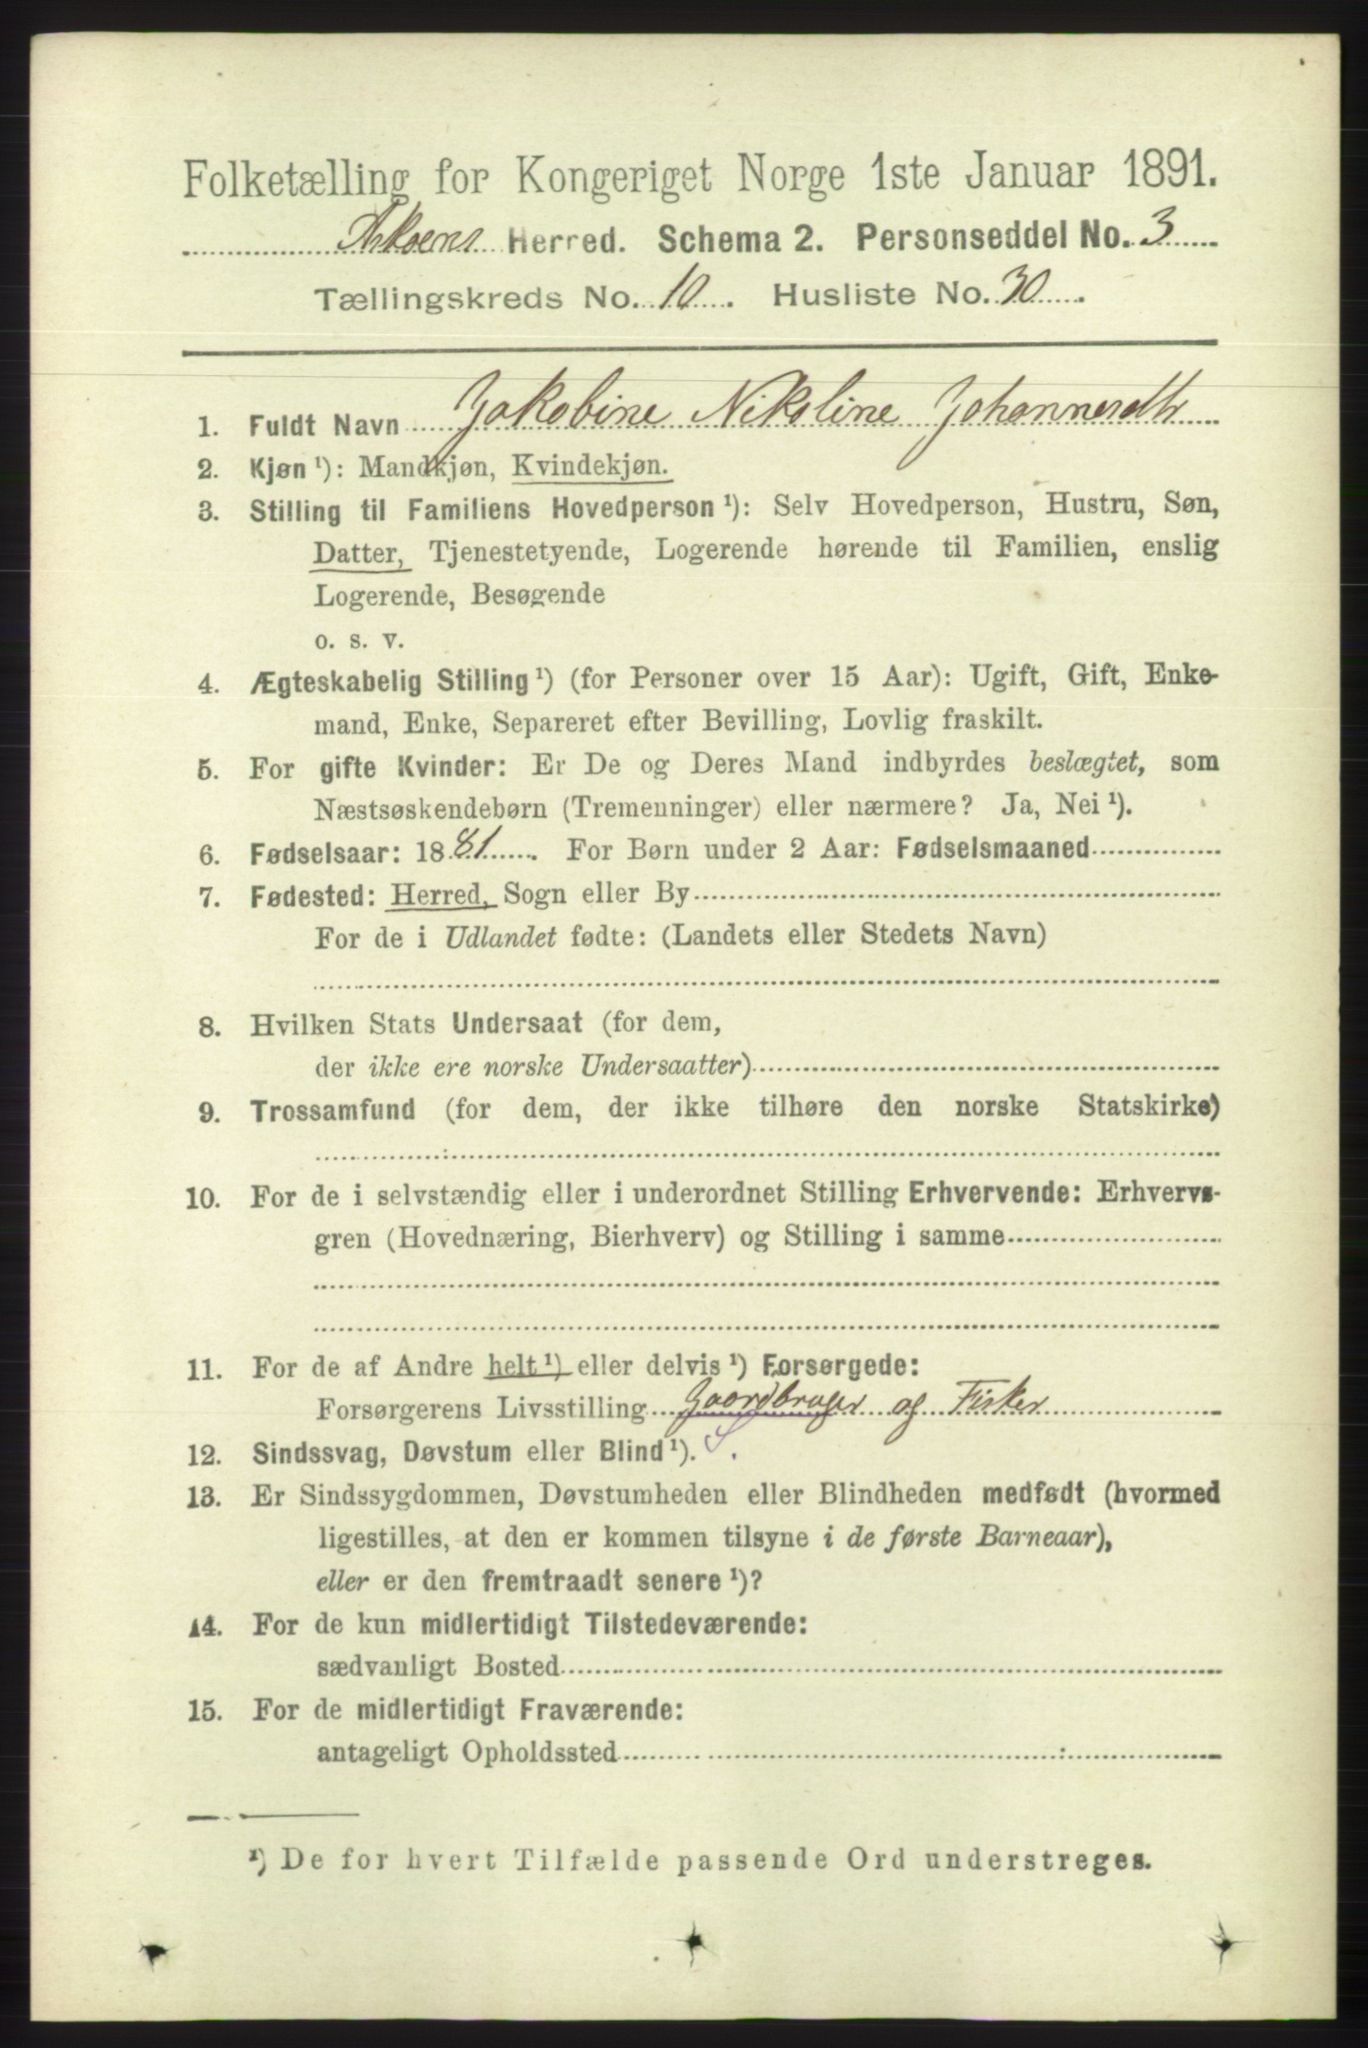 Folketælling for Kongeriget Norge 1ste Januar 1891.
Askøens Herred. Schema 2. Personseddel No. 3
Tællingskreds No. 10. Husliste No. 30.
1. Fuldt Navn Jakobine Nikoline Johannesdtr
2. Kjøn ¹): Mandkjøn, Kvindekjøn.
3. Stilling til Familiens Hovedperson ¹): Selv Hovedperson, Hustru, Søn,
Datter, Tjenestetyende, Logerende hørende til Familien, enslig
Logerende, Besøgende
o. s. v.
4. Ægteskabelig Stilling ¹) (for Personer over 15 Aar): Ugift, Gift, Enke-
mand, Enke, Separeret efter Bevilling, Lovlig fraskilt.
5. For gifte Kvinder: Er De og Deres Mand indbyrdes beslægtet, som
Næstsøskendebørn (Tremenninger) eller nærmere? Ja, Nei ¹).
6. Fødselsaar: 1881. For Børn under 2 Aar: Fødselsmaaned
7. Fødested: Herred, Sogn eller By
For de i Udlandet fødte: (Landets eller Stedets Navn)
8. Hvilken Stats Undersaat (for dem,
der ikke ere norske Undersaatter)
9. Trossamfund (for dem, der ikke tilhøre den norske Statskirke)
10. For de i selvstændig eller i underordnet Stilling Erhvervende: Erhvervs-
gren (Hovednæring, Bierhverv) og Stilling i samme
11. For de af Andre helt ¹) eller delvis ¹) Forsørgede:
Forsørgerens Livsstilling Gaardbruger og Fisker
12. Sindssvag, Døvstum eller Blind ¹). S.
13. Er Sindssygdommen, Døvstumheden eller Blindheden medfødt (hvormed
ligestilles, at den er kommen tilsyne i de første Barneaar),
eller er den fremtraadt senere ¹)?
14. For de kun midlertidigt Tilstedeværende:
sædvanligt Bosted
15. For de midlertidigt Fraværende:
antageligt Opholdssted
¹) De for hvert Tilfælde passende Ord understreges.